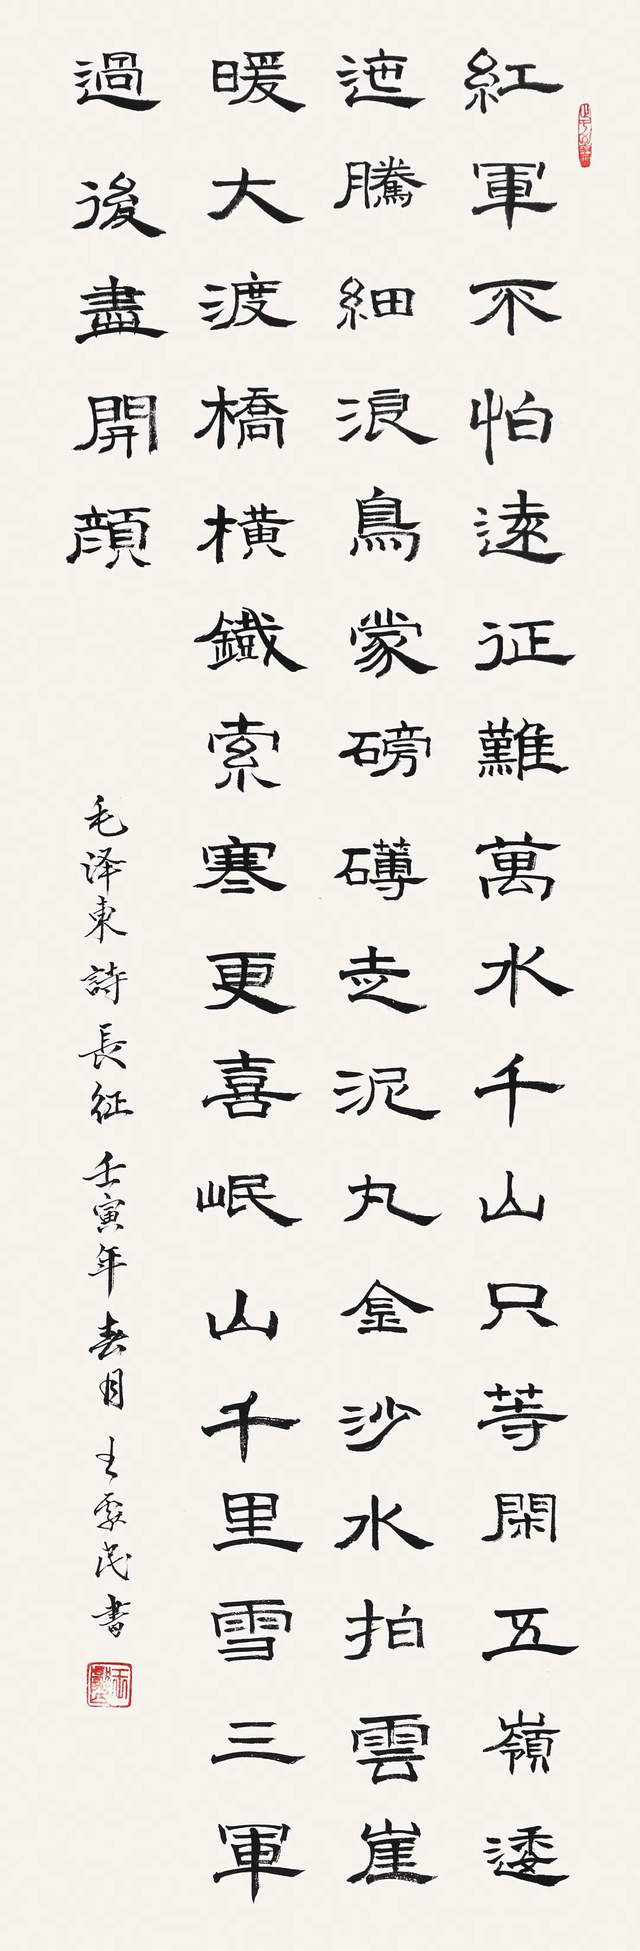 紅軍不怕遠征難萬水千山只等閑五嶺逶
迤騰細浪鳥蒙磅礴走泥丸金沙水拍雲崖
暖大渡橋橫鐵索寒更喜岷山千里雪三軍
過後盡開顏
毛泽東詩長征 壬寅年春月 王民書